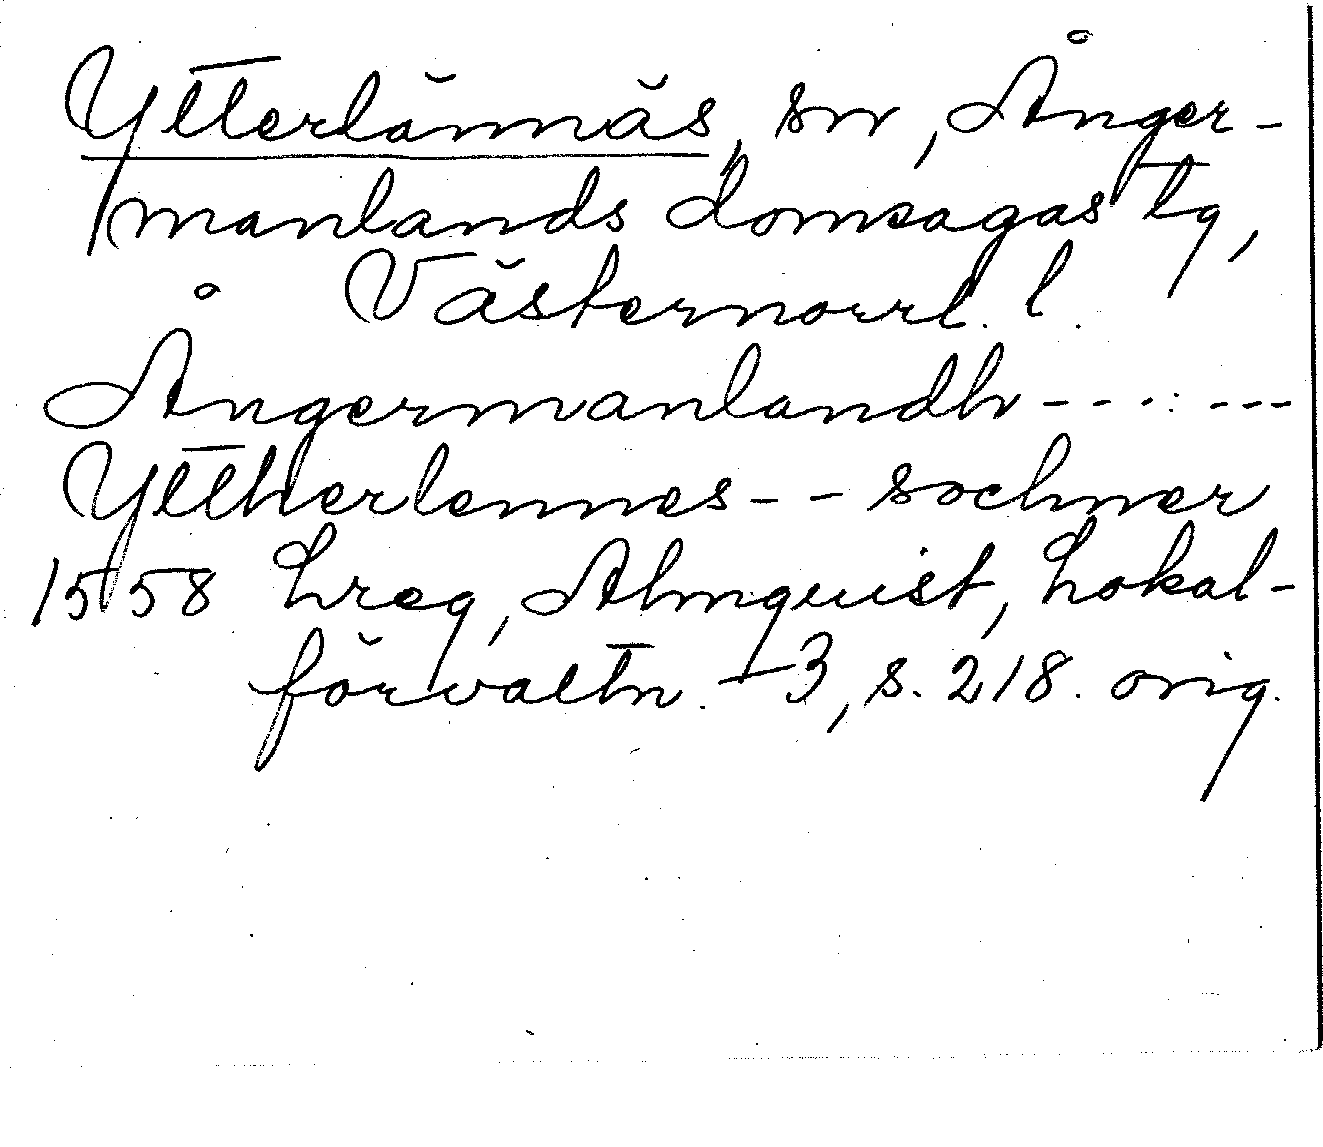 Ytterlännäs, sn, Ånger-
manlands domsagas tg,
Västernorrl. l.
Ångermanlandh - - - : - - -
Yttherlennes - - sochner
1558 Lreg, Almquist, Lokal-
förvaltn. 3, s. 218. orig.